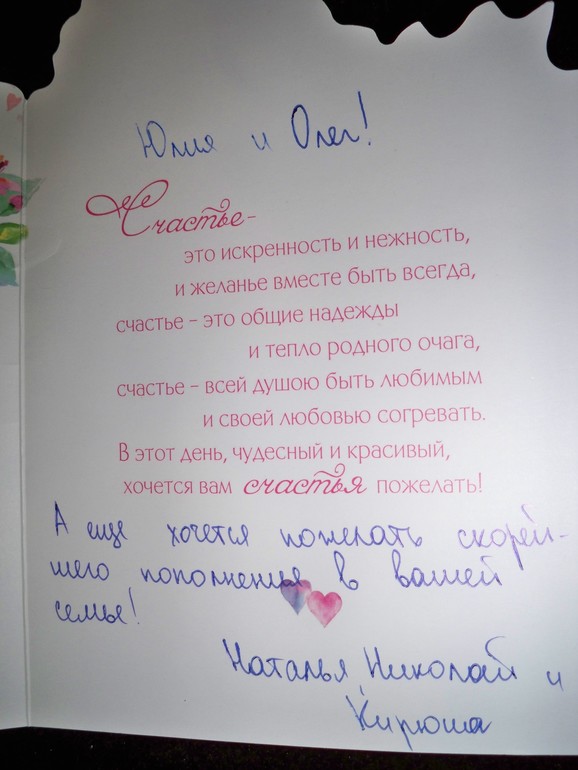 Юлия и Олег!
Счастье –
это искренность и нежность,
и желанье вместе быть всегда,
счастье – это общие надежды
и тепло родного очага,
счастье – всей душою быть любимым
и своей любовью согревать.
В этот день, чудесный и красивый,
хочется вам счастья пожелать!
А еще хочется пожелать скорей-
шего пополнения в вашей
семье!
Наталья, Николай и
Кирюша